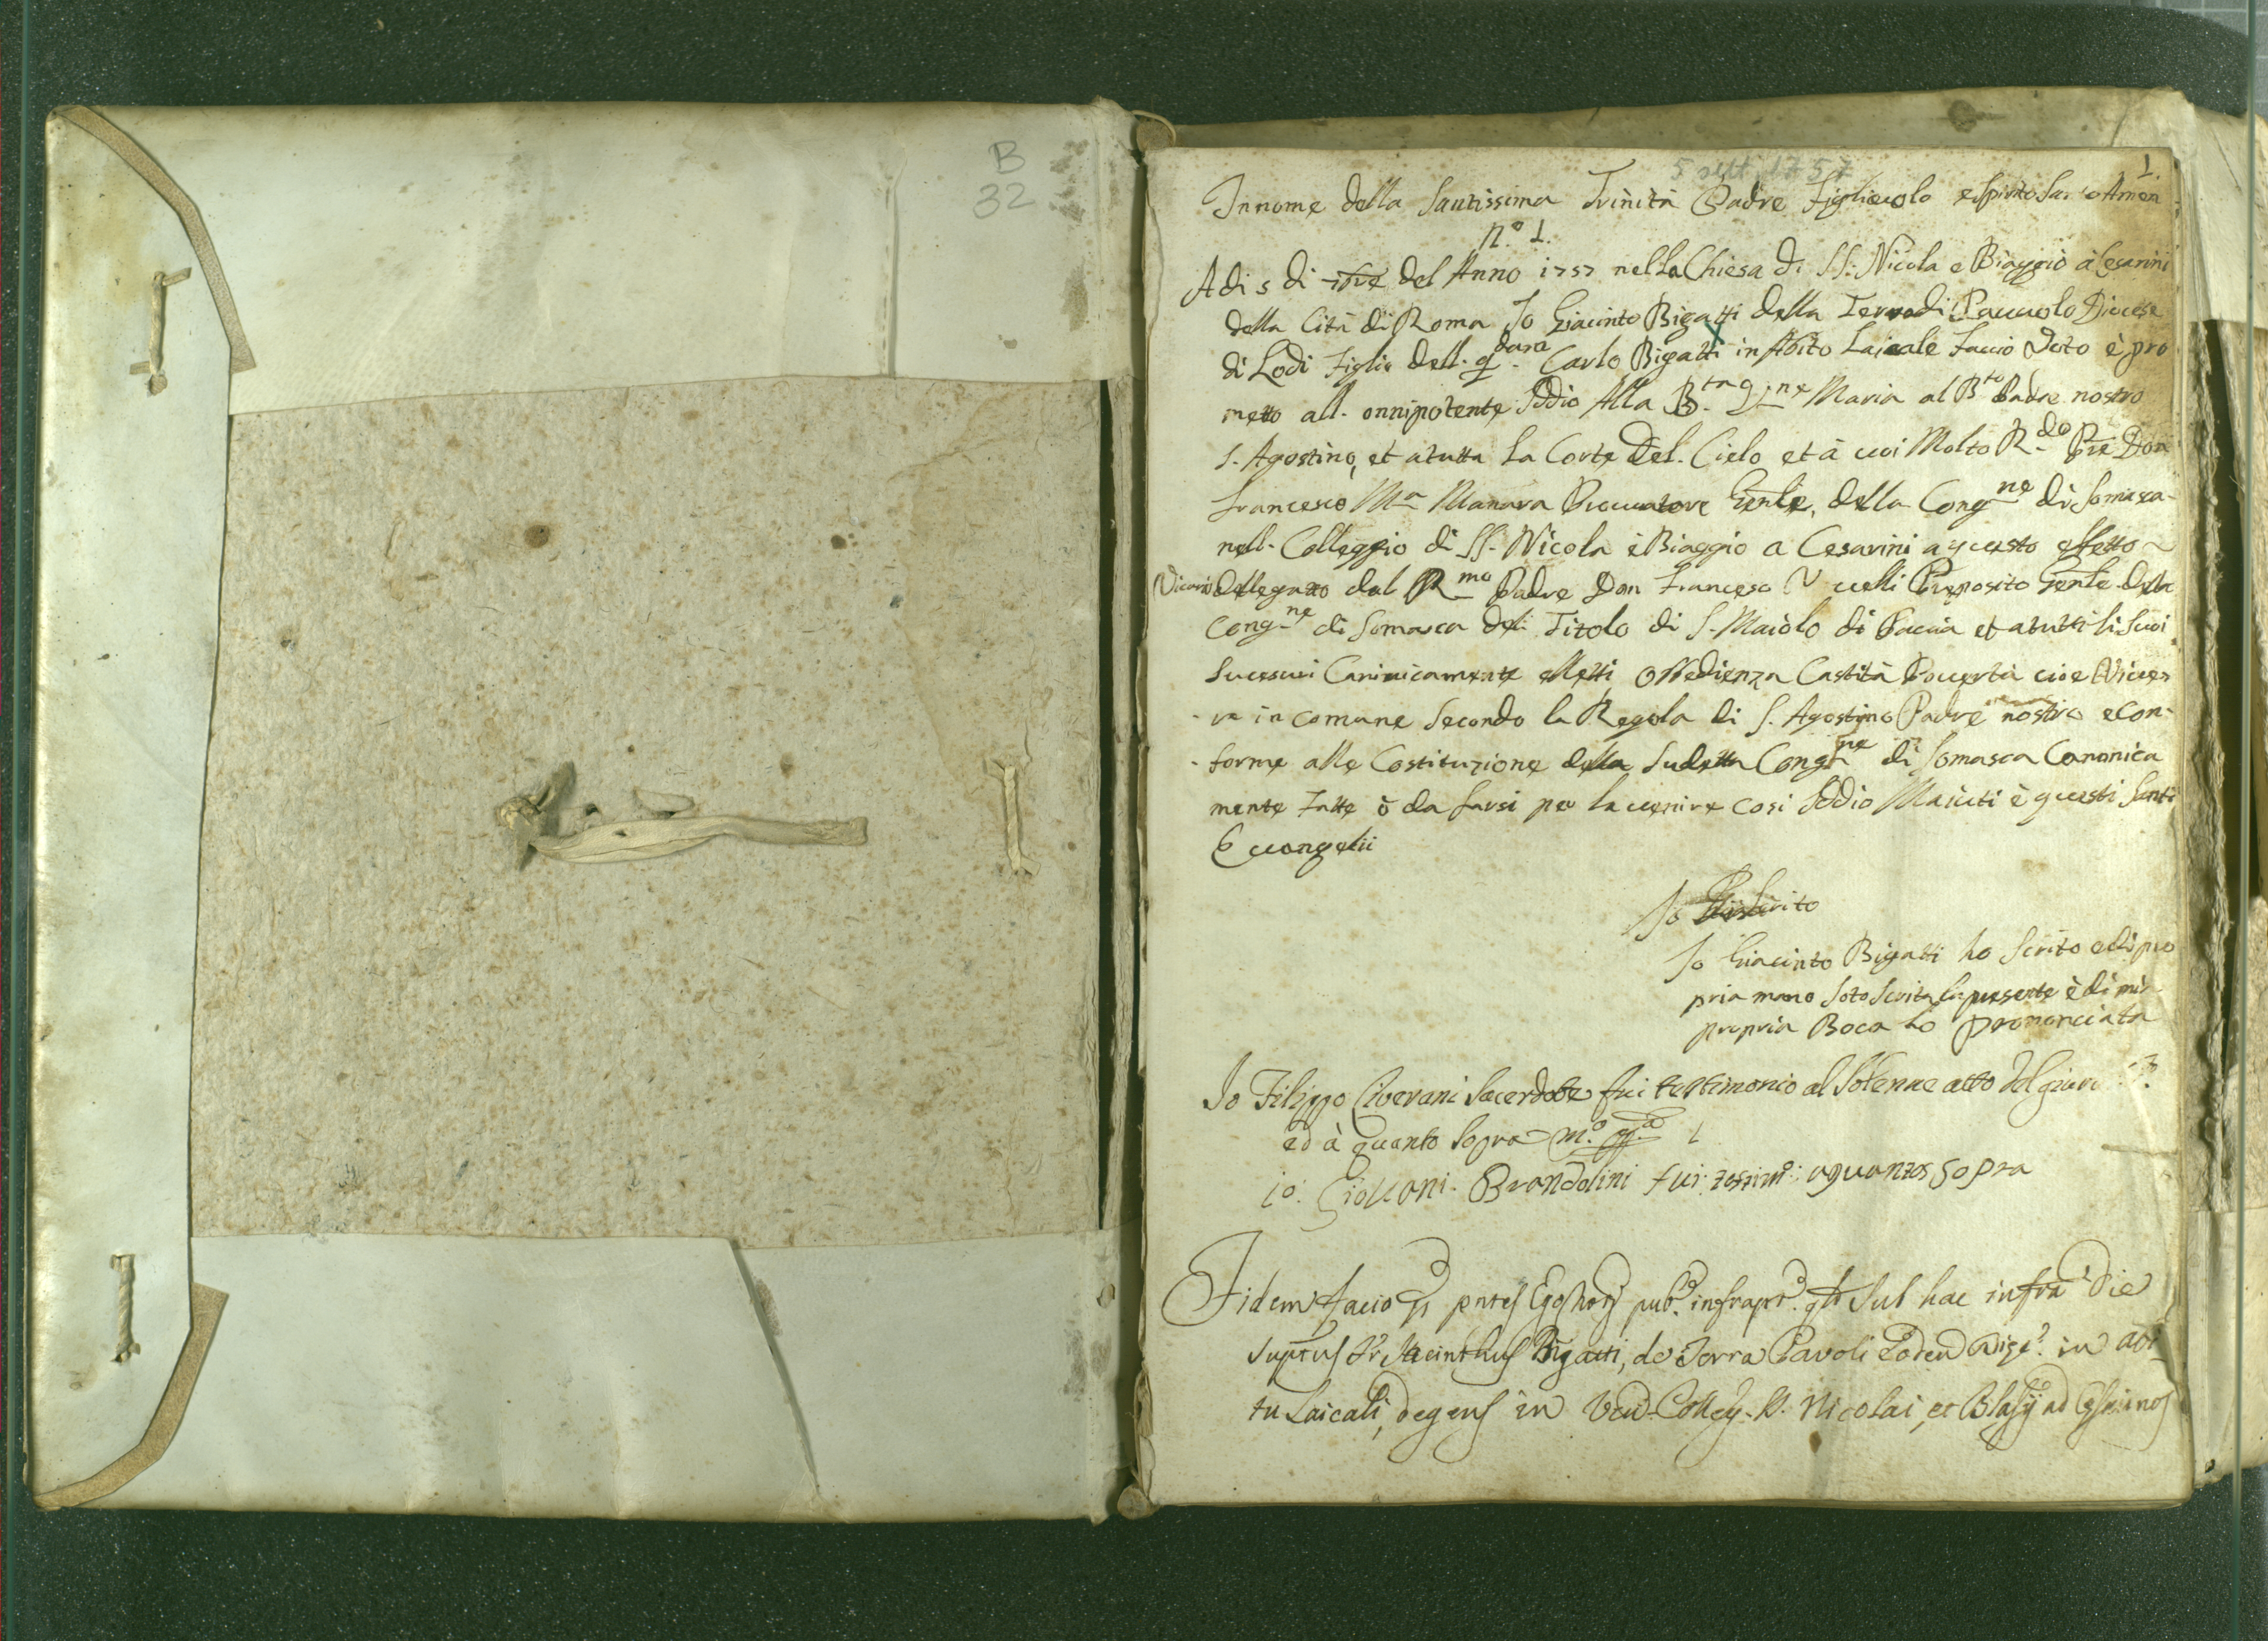 B
32
5 sett 1757
1.
In nome della Santissima Trinità Padre Figliuolo e Spirito Santo Amen
N.º 1.
Adi 5 di 7bre del Anno 1757 nella Chiesa di SS. Nicola e Biaggio à Cesarini
della Cità di Roma Io Giacinto Bigatti della Terra di Pauuolo Diocese
di Lodi Figlio dell. qdam Carlo Bigatti in Abito Laicale Faccio Voto è pro
metto all. onnipotente Iddio Alla B.ta V.ne Maria al B.to Padre nostro
S. Agostino, et a tutta la Corte Del. Cielo et à uoi Molto R.do Pre Don
Francesco M.a Manara Procuratore Genle. della Cong.ne di Somasca-
nell. Colleggio di SS. Nicola è Biaggio a Cesarini a questo effetto
Vicario dellegatto dal R.mo Padre Don Francesco Vecelli Preposito Genle della
Cong.ne di Somasca del Titolo di S. Maiòlo di Pauia et a tutti li Suoi
Sucesuri Canonicamente elletti Obbedienza Castità Pouertà cioe Viuer
-re in comune Secondo la Regola di S. Agostino Padre nostro e Con-
-forme alle Costituzione della Sudetta Cong.ne di Somasca Canonica
mente Fatte ò da farsi per la uenire cosi Iddio Maiuti è questi Santi
Euuangelii
Io
Io Giacinto Bigatti ho Scrito e di pro
pria mano Soto Scrita la presente è di mia
propria Boca ho prononciata
Io Filippo Cliverani Sacerdote fui testimonio al Solenne atto del giura
ed à quanto Sopra m.º pp.a
io: Giouani. Brandolini fui: testim.º: aquantos sopra
Fidem facio p pntes Ego Nots pub.º infraptº. qtr Sub hac infrã die
suptus Fr Hiacinthus Bigatti, de Terra Pavoli Loden in abi
tu Laicali, degens in Ven. Colleg. SS. Nicolai, et Blasij ad Cesarinos